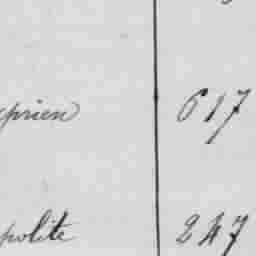 prien 617
polite 247